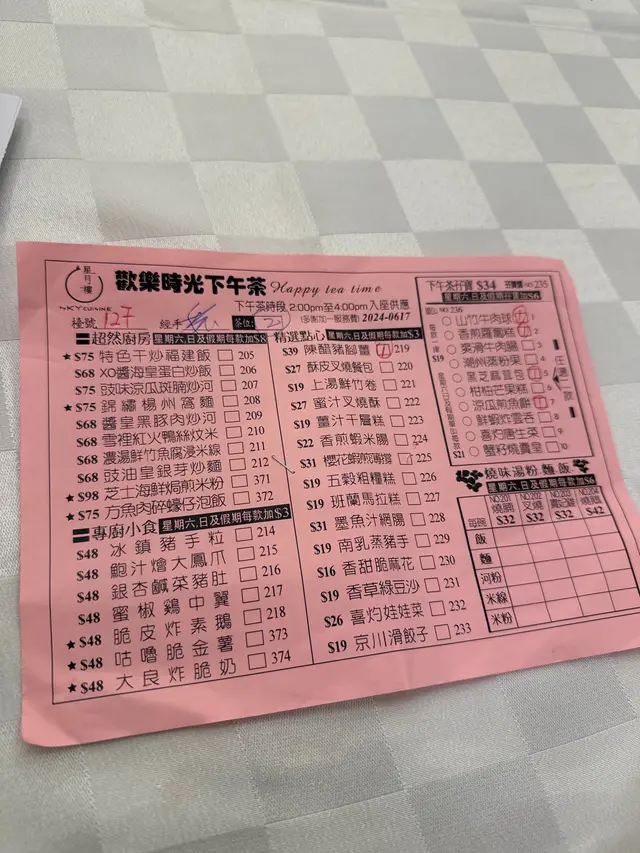 星月樓
SKY CUISINE
歡樂時光下午茶 Happy tea time
下午茶時段 2:00pm至4:00pm入座供應
(多衡加一服務費) 2024-0617
檯號 127 經手 茶位: 2
超然廚房 星期六、日及假期每款加$8
★ $75 特色干炒福建飯 205
$68 XO醬海皇蛋白炒飯 206
$75 豉味涼瓜斑腩炒河 207
★ $75 錦繡楊州窩麵 208
$68 醬皇黑豚肉炒河 209
$68 雪裡紅火鴨絲炆米 210
$68 濃湯鮮竹魚腐浸米線 211
$68 豉油皇銀芽炒麵 212
★ $98 芝士海鮮焗煎米粉 371
★ $75 方魚肉碎蠔仔泡飯 372
專廚小食 星期六、日及假期每款加$3
$48 冰鎮豬手粒 214
$48 鮑汁燴大鳳爪 215
$48 銀杏鹹菜豬肚 216
$48 蜜椒鷄中翼 217
$48 脆皮炸素鵝 218
★ $48 咕嚕脆金薯 373
★ $48 大良炸脆奶 374
精選點心 星期六、日及假期每款加$3
$39 陳醋豬腳薑 219
$27 酥皮叉燒餐包 220
$19 上湯鮮竹卷 221
$27 蜜汁叉燒酥 222
$19 薑汁千層糕 223
$22 香煎蝦米腸 224
$31 櫻花蝦煎薄撐 225
$19 五穀粗糧糕 226
$19 班蘭馬拉糕 227
$31 墨魚汁網腸 228
$19 南乳蒸豬手 229
$16 香甜脆麻花 230
$19 香草綠豆沙 231
$26 喜灼娃娃菜 232
$19 京川滑餃子 233
下午茶孖寶 $34 NO:235
星期六、日及假期孖寶加$6
NO:236
山竹牛肉球 1
香煎蘿蔔糕 2
爽滑牛肉腸 3
潮州蒸粉果 4
黑芝麻茸包 5
柑柚芒果糕 6
涼瓜煎魚餅 7
鮮蝦炸雲吞 8
喜灼唐生菜 9
蟹籽燒賣皇 10
每款 $19
星期六、日及假期單點每款 $21
任選二款
燒味湯粉、麵、飯
星期六、日及假期每款加$6
每碗 NO:201 $32 NO:202 叉燒 $32 NO:203 $32 NO:204 燒鵝 $42
飯
麵
河粉
米線
米粉